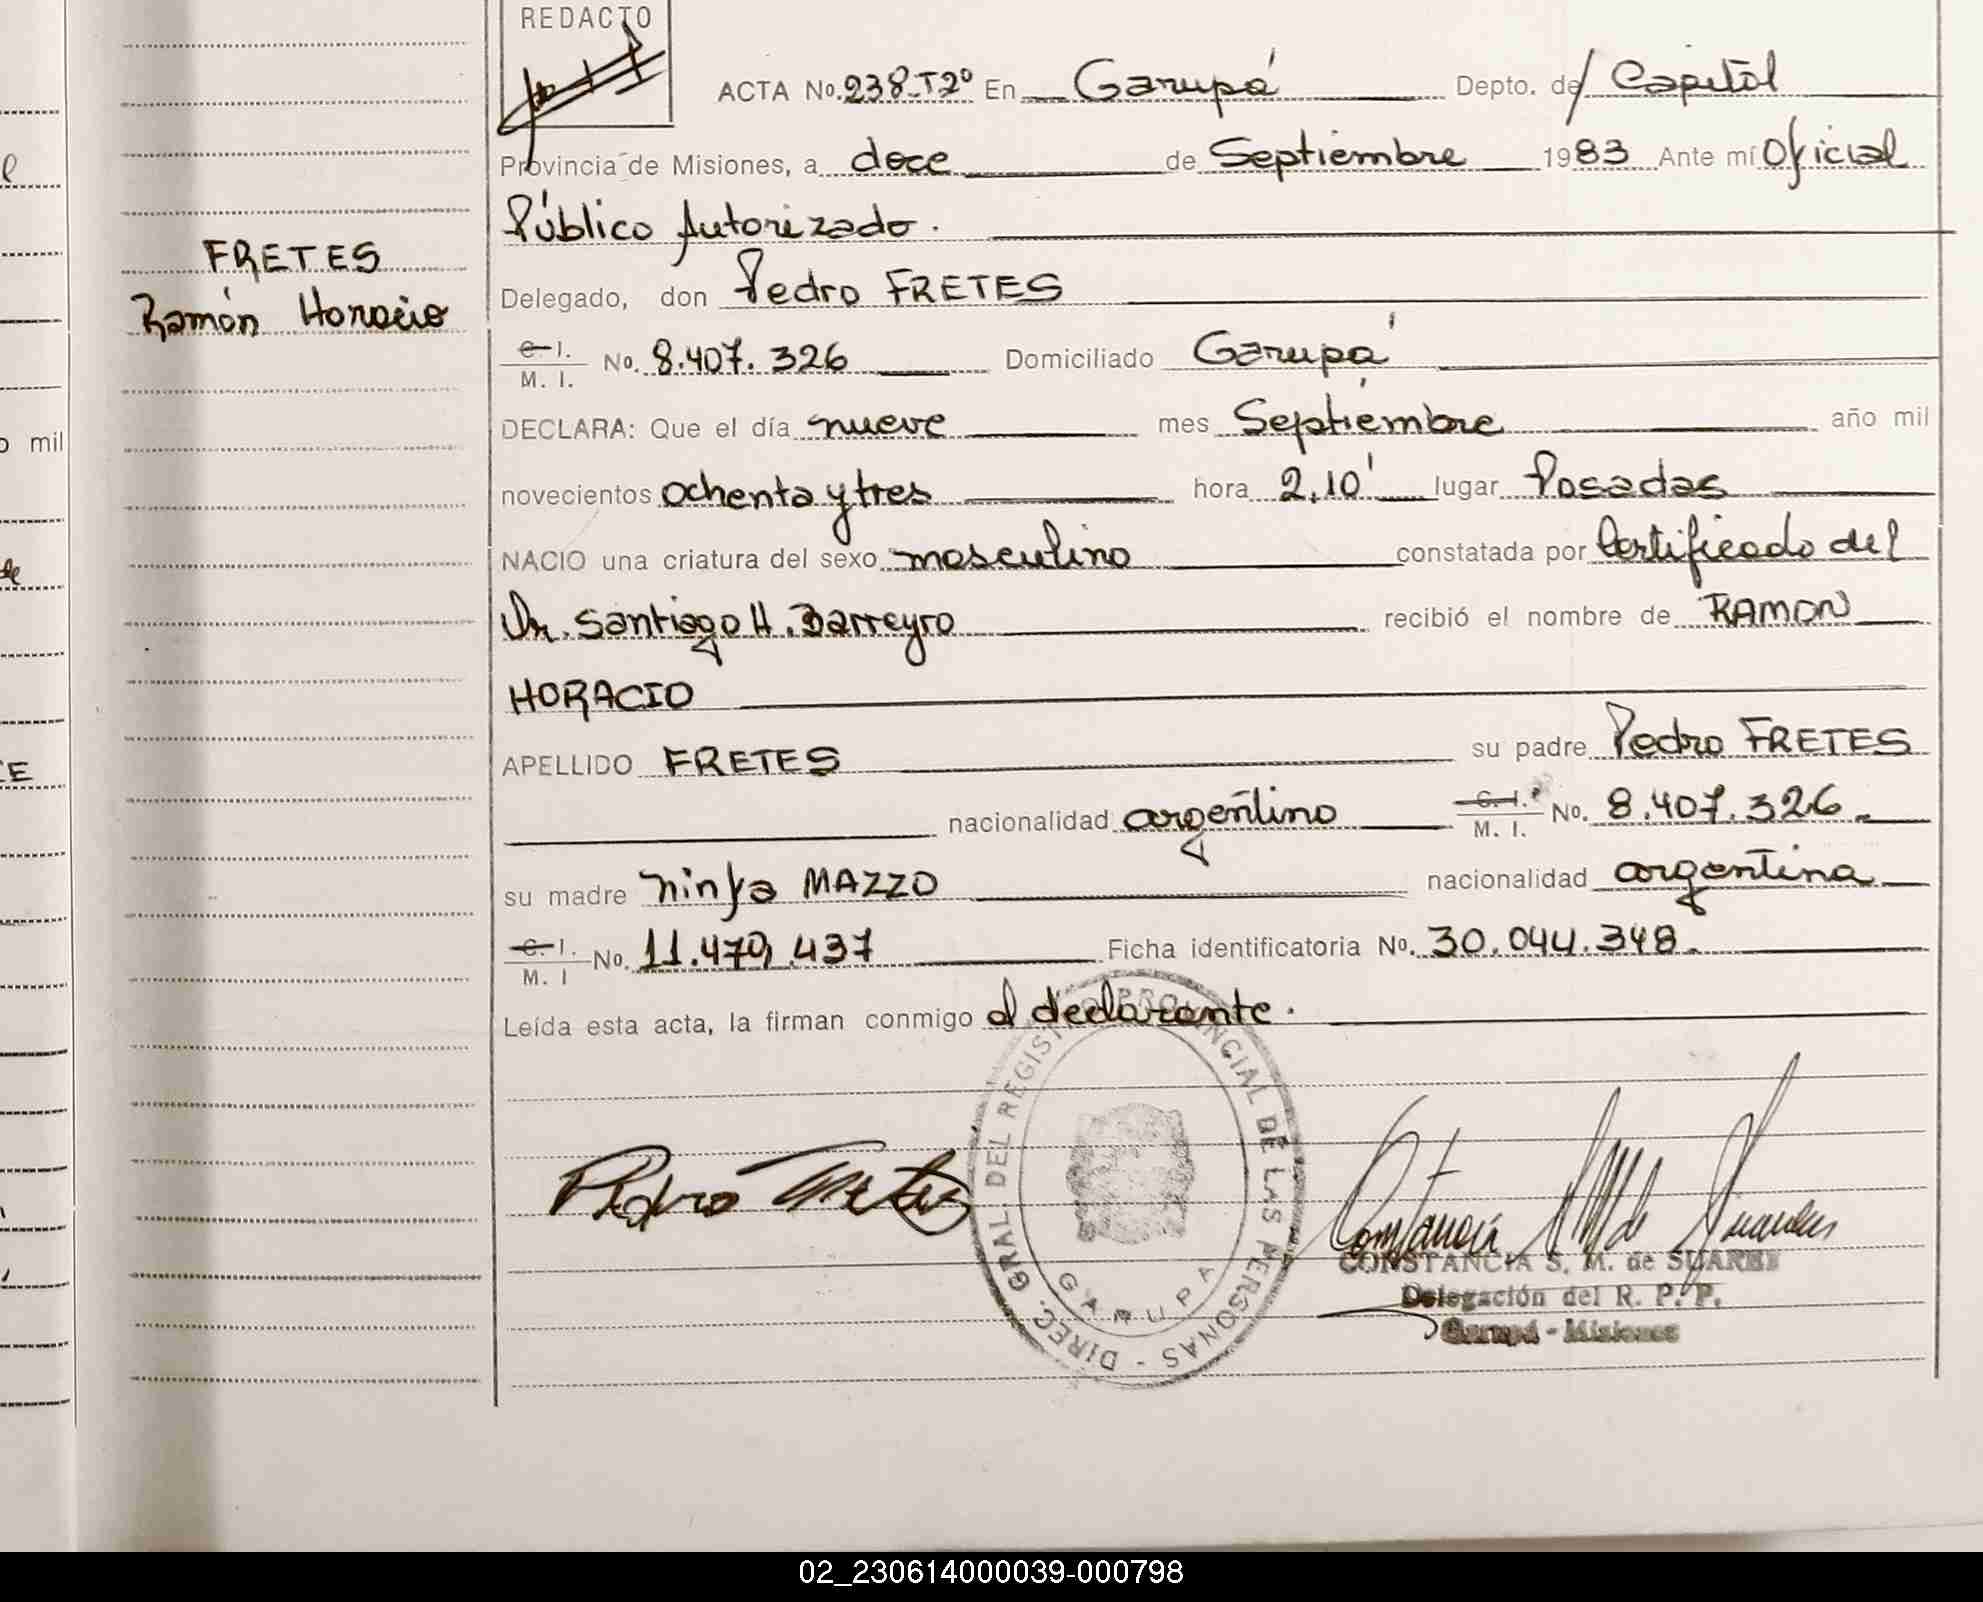 REDACTO
ACTA No. 238-T2º En Garupá Depto. de/ Capital
Provincia de Misiones, a doce de Septiembre 1983 Ante mí Oficial
Público Autorizado.
FRETES
Ramón Horacio
Delegado, don Pedro FRETES
C. I. M. I. No. 8.407.326 Domiciliado Garupá
DECLARA: Que el día nueve mes Septiembre año mil
novecientos ochenta y tres hora 2,10' lugar Posadas
NACIO una criatura del sexo masculino constatada por Certificado del
Dr. Santiago H. Barreyro recibió el nombre de RAMON
HORACIO
APELLIDO FRETES su padre Pedro FRETES
nacionalidad argentino C. I. M. I. No. 8.407.326
su madre Ninfa MAZZO nacionalidad argentina
C. I. M. I No. 11.479.437 Ficha identificatoria No. 30.044.348.
Leída esta acta, la firman conmigo el declarante.
Pedro Fretes
DIREC. GRAL DEL REGISTRO PROVINCIAL DE LAS PERSONAS -
GARUPA
CONSTANCIA S. M. de SUAREZ
Delegación del R. P. P.
Garupá - Misiones
o mil
de
02_230614000039-000798